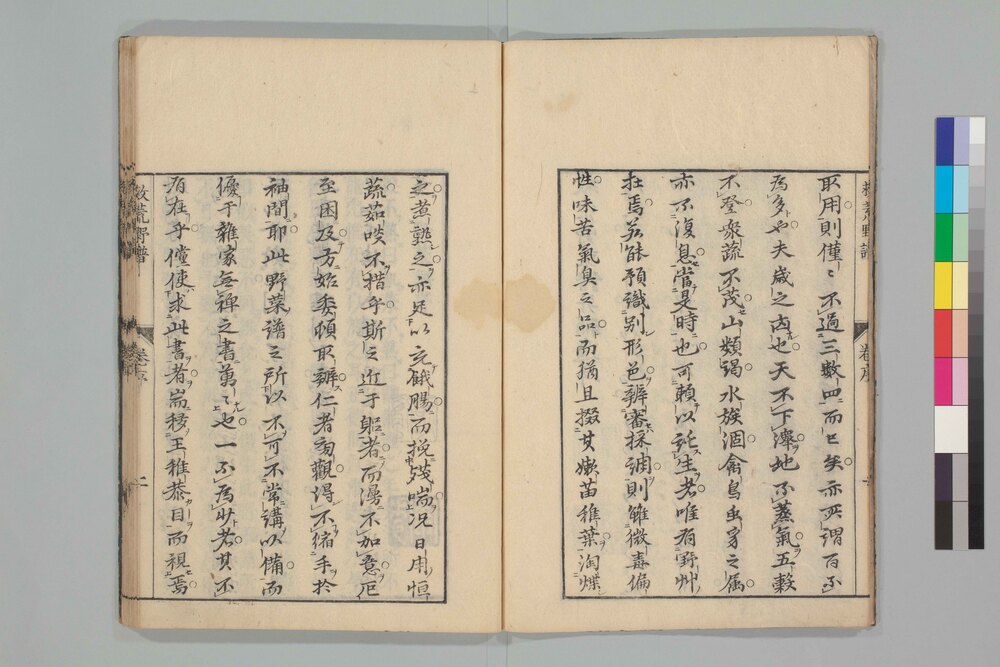 救荒野譜
卷序
取用則僅〻不過三數四而已矣亦所謂百不
爲多也夫歲之凶也天不下澤地不蒸氣五穀
不登衆蔬不茂山顂渴水族涸禽鳥虫豸之属
亦不復息當是時也可賴以託生者唯有野艸
在焉若能預識别形色辨審採調則雖微毒偏
性味苦氣臭之品而猶且掇其嫩苗稚葉淘煠
之煮熟之亦足以充餓腸而挽殘喘况日用恒
蔬茹啖不措乎斯之近于躬者而漫不加意厄
至困及方始委頓取辨仁者匆觀得不縮手於
袖間耶此野菜譜之所以不可不常講以備而
優于雜家無裨之書萬〻也一不爲少者其不
有在乎儻使求此書者耑移王稚恭目而視焉
救荒野譜
卷序
二